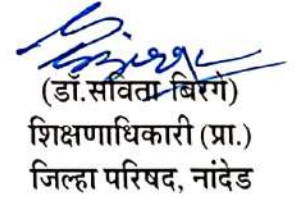 (डॉ.सविता बिरगे)
शिक्षणाधिकारी (प्रा.)
जिल्हा परिषद, नांदेड